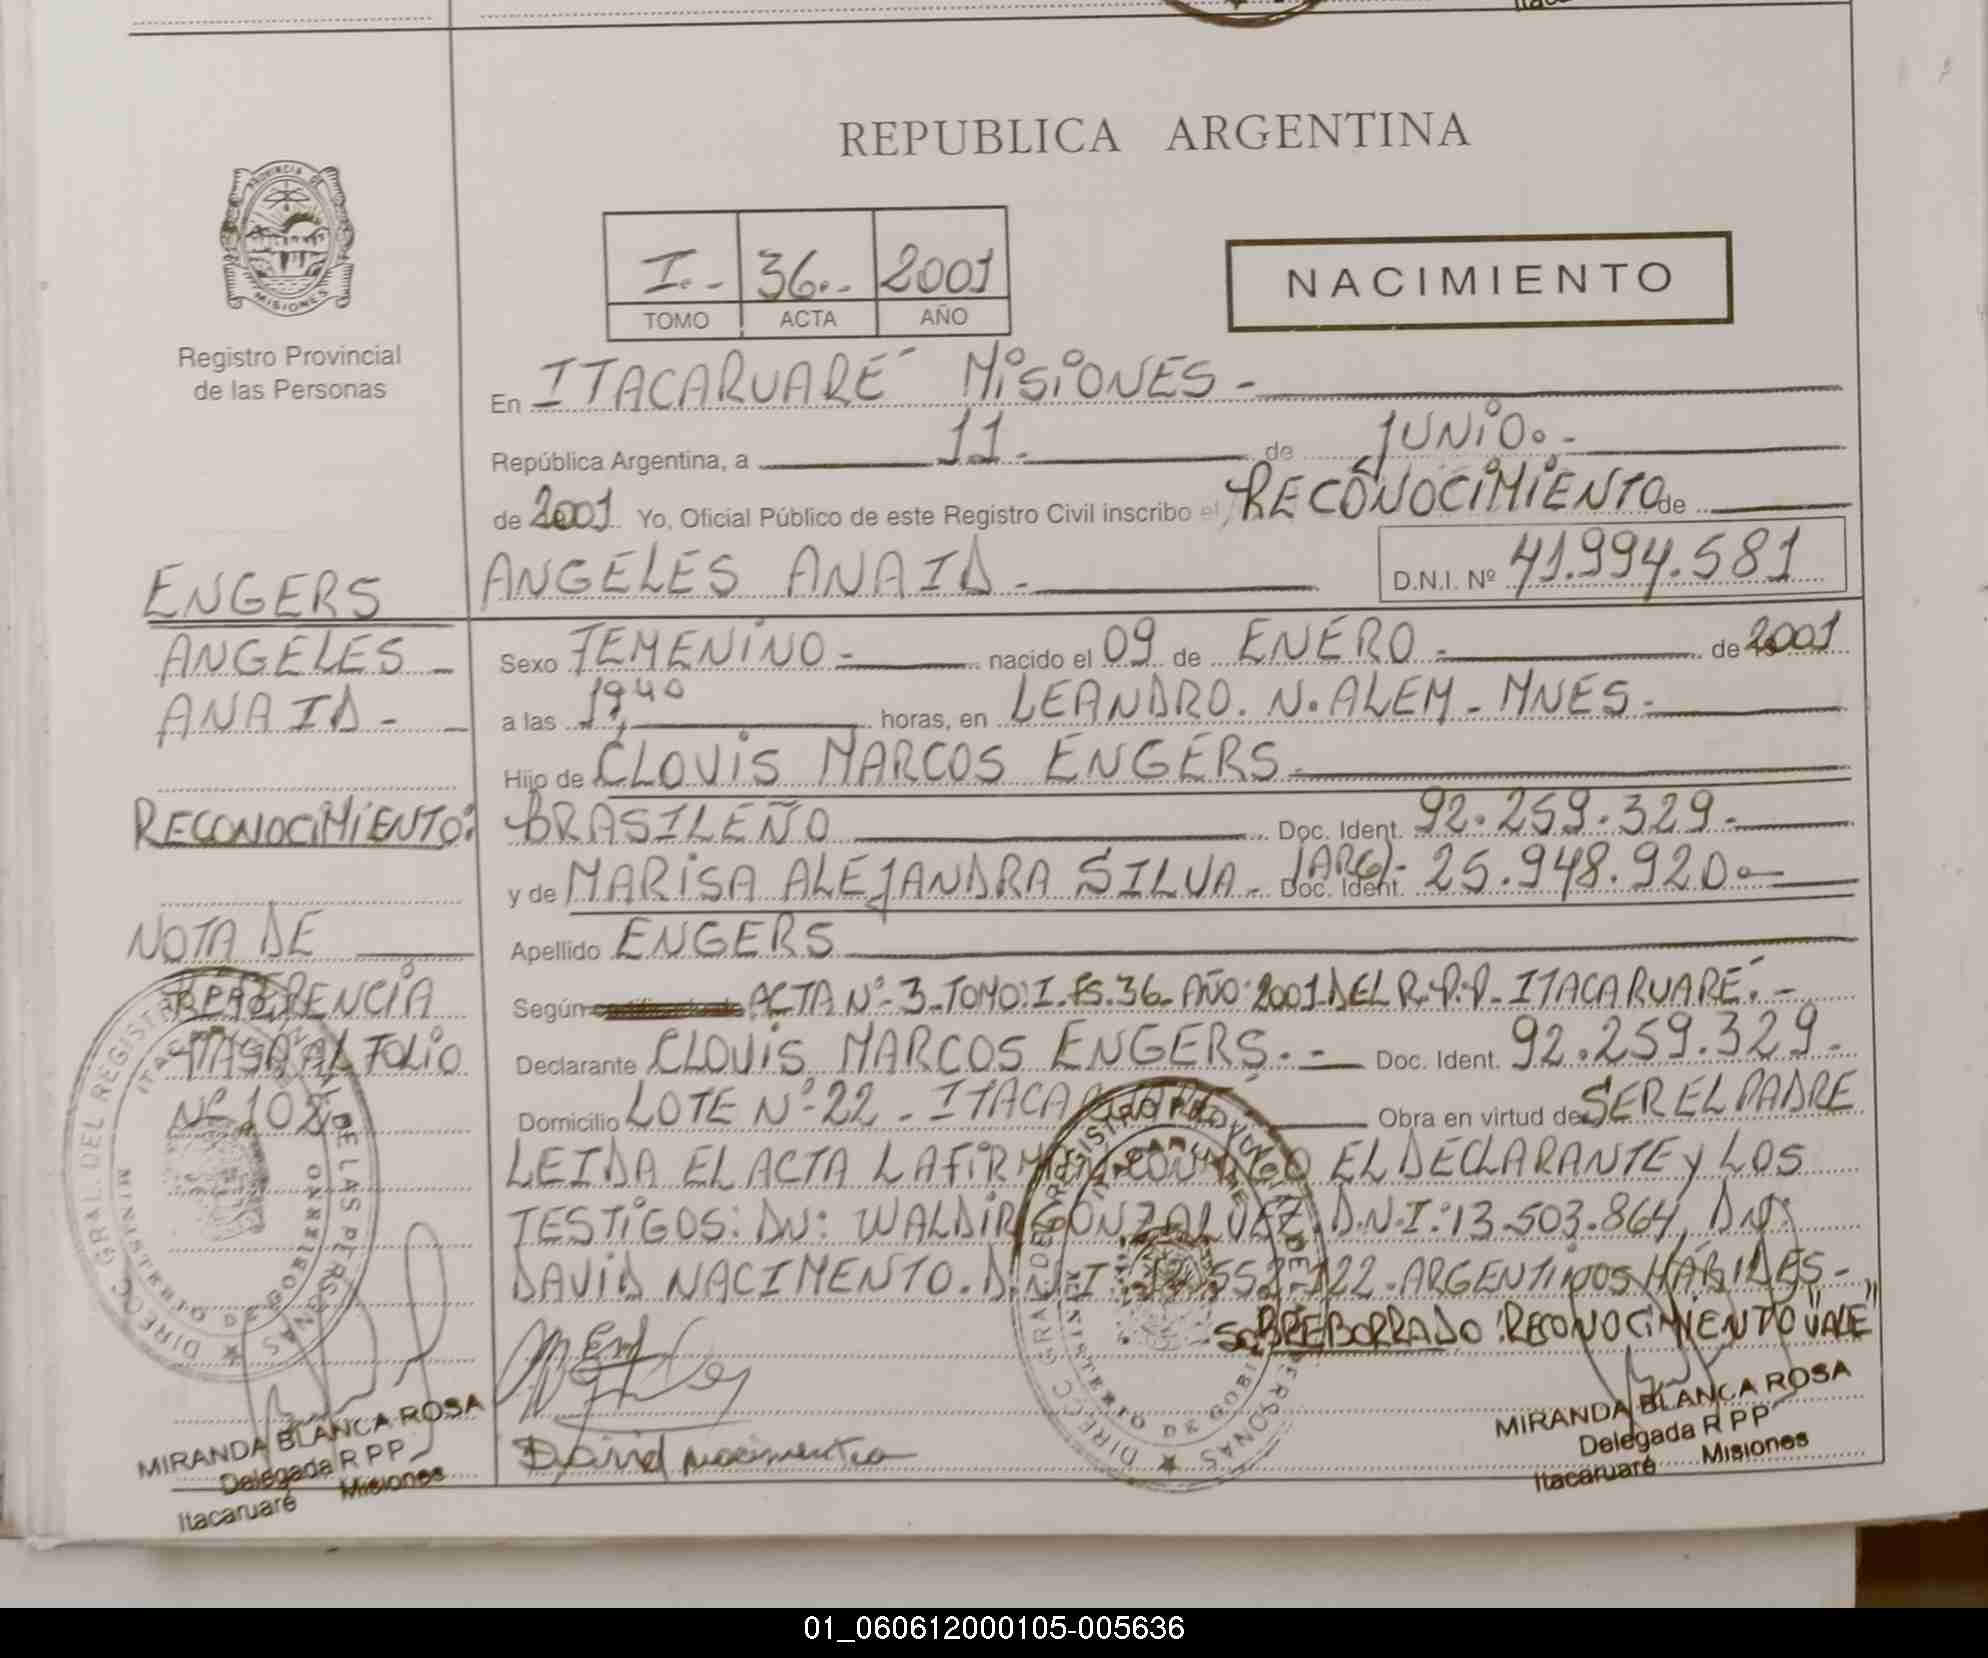 REPUBLICA ARGENTINA
PROVINCIA DE MISIONES
Registro Provincial
de las Personas
I.- 36.- 2001
TOMO ACTA AÑO
NACIMIENTO
En ITACARUARÉ MISIONES -
República Argentina, a 11.- de JUNIO.-
de 2001 Yo, Oficial Público de este Registro Civil inscribo el RECONOCIMIENTO de
ANGELES ANAID.- D.N.I. Nº 41.994.581
Sexo FEMENINO.- nacido el 09 de ENERO.- de 2001
a las horas, en LEANDRO. N. ALEM - MNES.-
Hijo de CLOVIS MARCOS ENGERS.-
BRASILEÑO Doc. Ident. 92.259.329.-
y de MARISA ALEJANDRA SILVA - (ARG)- Doc. Ident. 25.948.920.-
Apellido ENGERS
Según ACTA Nº-3-TOMO: I. FS. 36- AÑO: 2001 DEL R.P.P- ITACARUARÉ.-
Declarante CLOVIS MARCOS ENGERS.- Doc. Ident. 92.259.329.-
Domicilio LOTE Nº-22 - ITACARUARE Obra en virtud de SER EL PADRE
LEIDA EL ACTA LA FIRMAN CONMIGO EL DECLARANTE Y LOS
TESTIGOS: DN: WALDIR GONZALVEZ. D.N.I: 13.503.864, DN:
DAVID NACIMENTO. D.N.I 552.122. ARGENTINOS HÁBILES-
SOBREBORRADO: RECONOCIMIENTO "VALE"
David nacimento
MIRANDA BLANCA ROSA
Delegada R P P
Itacaruaré Misiones
ENGERS
ANGELES -
ANAID - -
RECONOCIMIENTO:
NOTA DE
REFERENCIA
PASA AL FOLIO
Nº 102
MIRANDA BLANCA ROSA
Delegada R P P
Itacaruaré Misiones
01_060612000105-005636